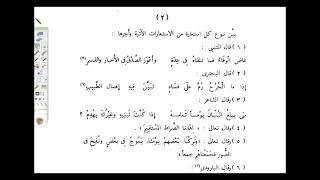 (٢)
بيِّن نوع كل استعارة من الاستعارات الآتية وأجرها :
(١) قال المتنبي :
غاض الوفاء فما تلقاه في عِدَةٍ وأعوز الصِّدْقُ في الأخبار والقسم
(٢) قال البحتري :
إذا ما الجُرْحُ رُمَّ على فسادٍ تبيَّن فيه إهمال الطبيب
(٣) قال الشاعر :
متى يبلغ البنيان يوماً تمامه إذا كنت تبنيه وغيرك يهدم ؟
(٤) قال تعالى : « اهدنا الصِّراط المستقيم » .
(٥) قال تعالى : « وتركنا بعضهم يومئذ يموج في بعض ونُفِخ في
الصُّور فجمعناهم جمعاً » .
(٦) قال البارودي :